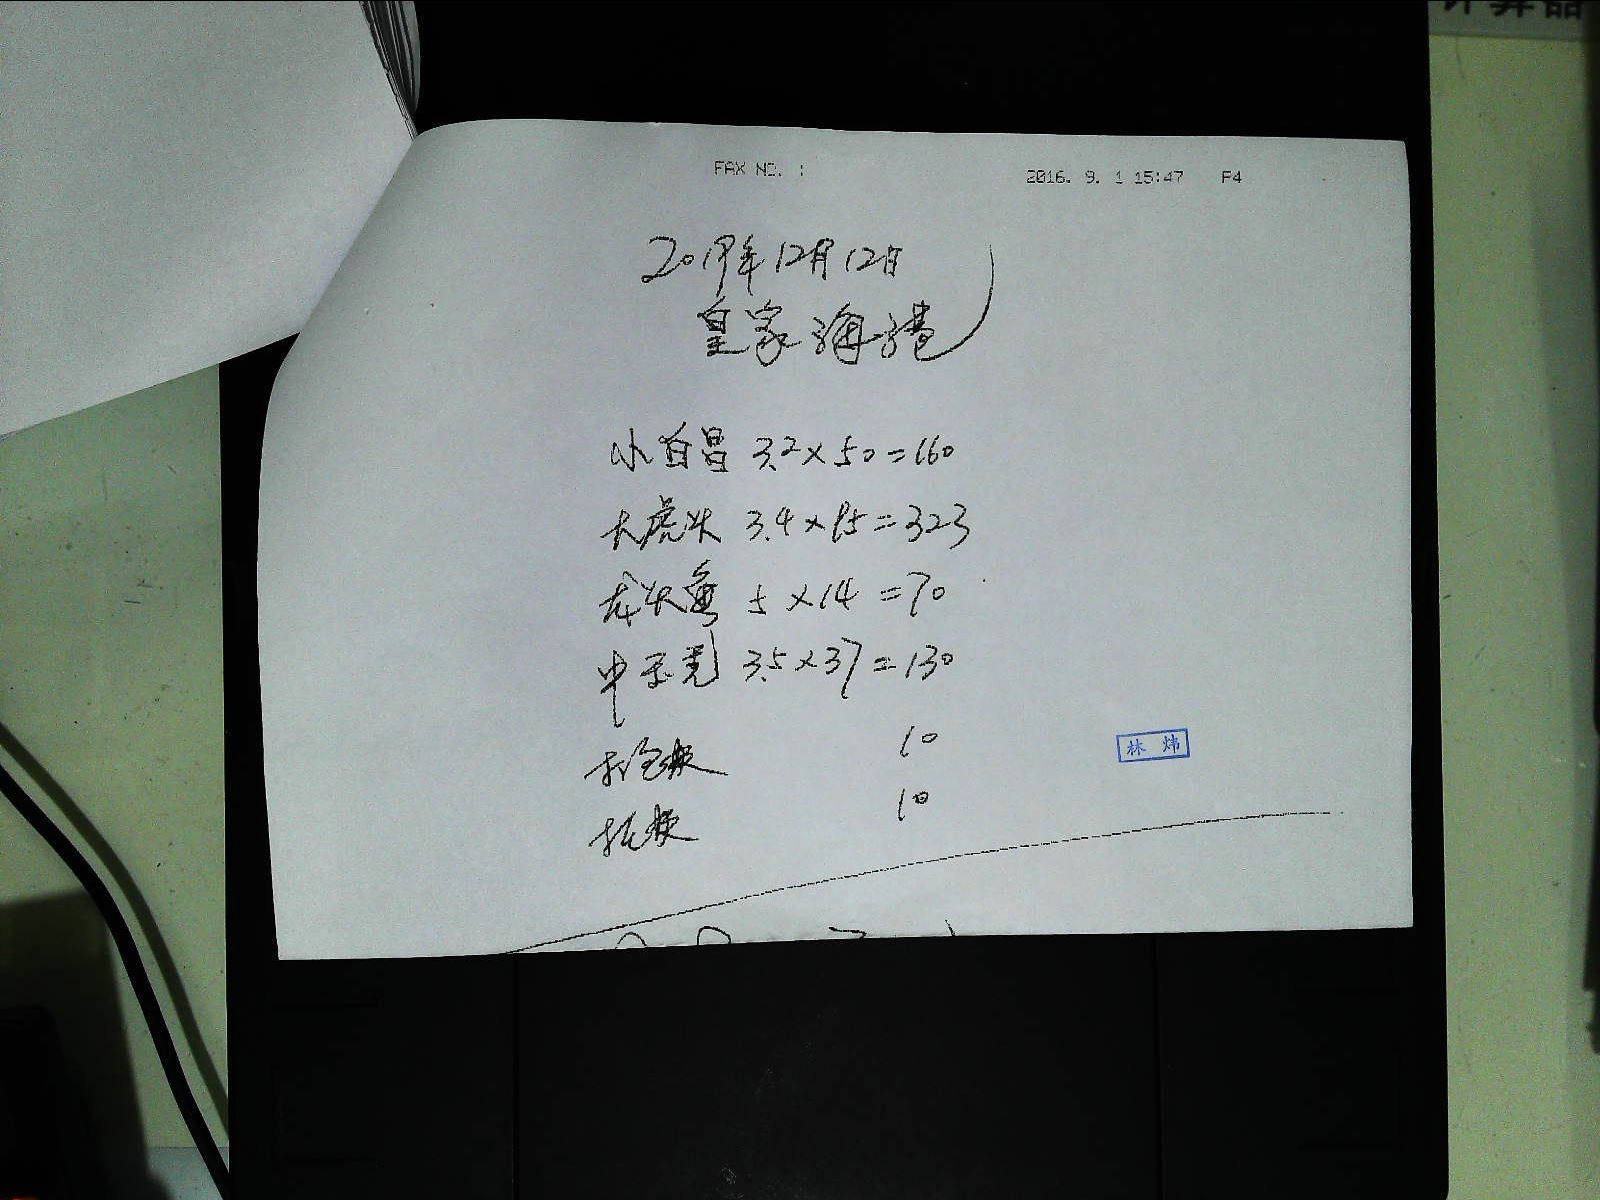 计算器
FAX NO. :
2016. 9. 1 15:47 P4
2019年12月12日
皇家海港
小白昌 3.2×50=160
大虎头 3.4×95=323
龙头鱼 5×14=70
中 3.5×37=130
10
10
林炜